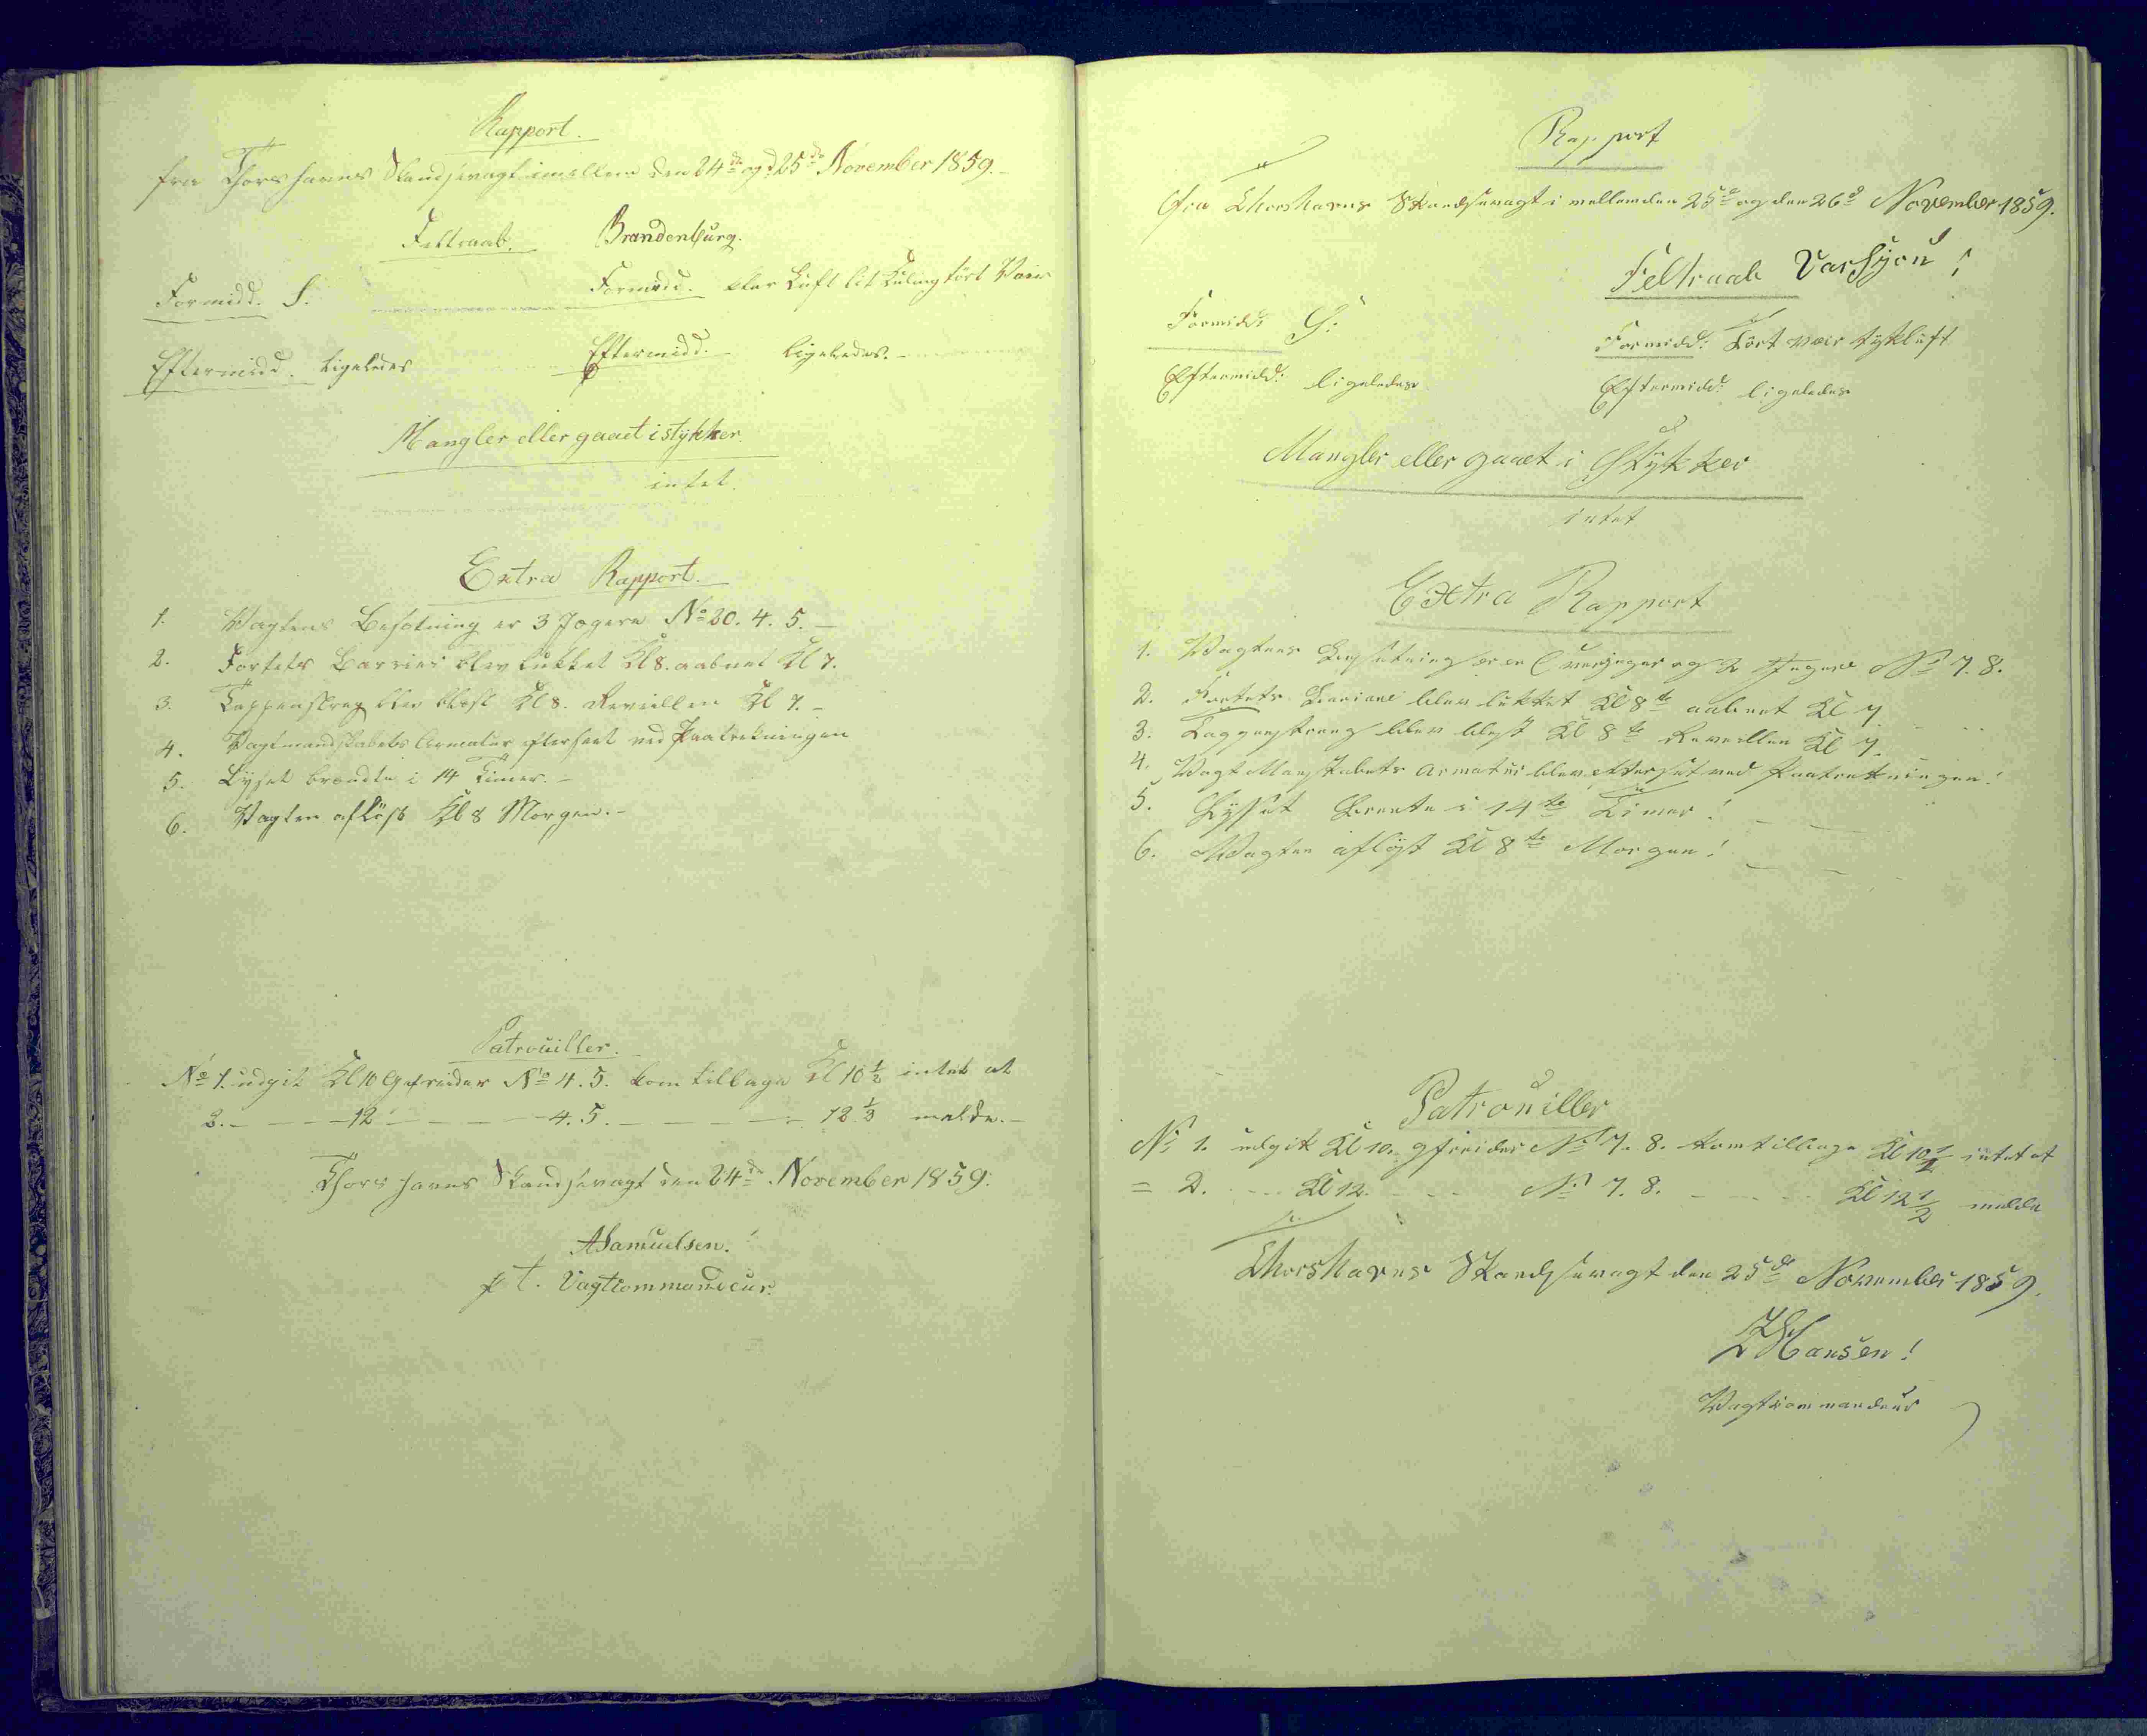 Rapport.
fra Thorshavns Skandsevagt imellem den 24de og 25de November 1859.
Feltraab. Brandenburg.
Formidd. S. Formidd. klar Luft lit Kuling tört Veir
Eftermidd. ligeledes Eftermidd. ligeledes.
Mangler eller gaaet i stykker.
intet.
Extra Rapport.
1. Vagtens Besætning er 3 Jægere No 20. 4. 5.
2. Fortets Barrier blev lukket Kl 8. aabnet Kl 7.
3. Tappenstreg blev blæst Kl 8. Reveillen Kl 7.
4. Vagtmandskabets Armatur efterseet ved Paatrekningen
5. Lyset brændte i 14 Timer.
6. Vagten aflöst Kl 8 Morgen.
Patrouiller.
No 1. udgik Kl 10 Gefreider No 4. 5. kom tilbage Kl 10 1/2 intet at
2. 12 4. 5. 12 1/3 melde.
Thorshavns Skandsevagt den 24de November 1859.
ASamuelsen.
p t. Vagtcommandeur.
Rapport
Fra Thorshavns Skandsevagt i mellem den 25d og den 26d November 1859.
Feltraab Varshou!
Formidd: S: Formidd: Tört veir tyk luft
Eftermidd: ligeledes Eftermidd: ligeledes
Mangler eller gaaet i Stykker
intet
Extra Rapport
1. Vagtens Besetning er en Overjeger og 2 Jegere No 7. 8.
2. Fortets Bariere blev lukket Kl 8te aabnet Kl 7.
3. Tappenstreng blev blest Kl 8te Reveillen Kl 7.
4. Vagt Manskabets Armatur blev efterset ved Paatrekningen!
5. Lyset Brente i 14te Timer!
6. Vagten aflöst Kl 8te Morgen!
Patrouiller
No 1. udgik Kl 10. gfreider No 7. 8. kom tilbage Kl 10 1/2 intet at
= 2. Kl 12. No 7. 8. Kl 12 1/2 melde
Thorshavns Skandsevagt den 25de November 1859.
Hansen!
Vagtcommandeur